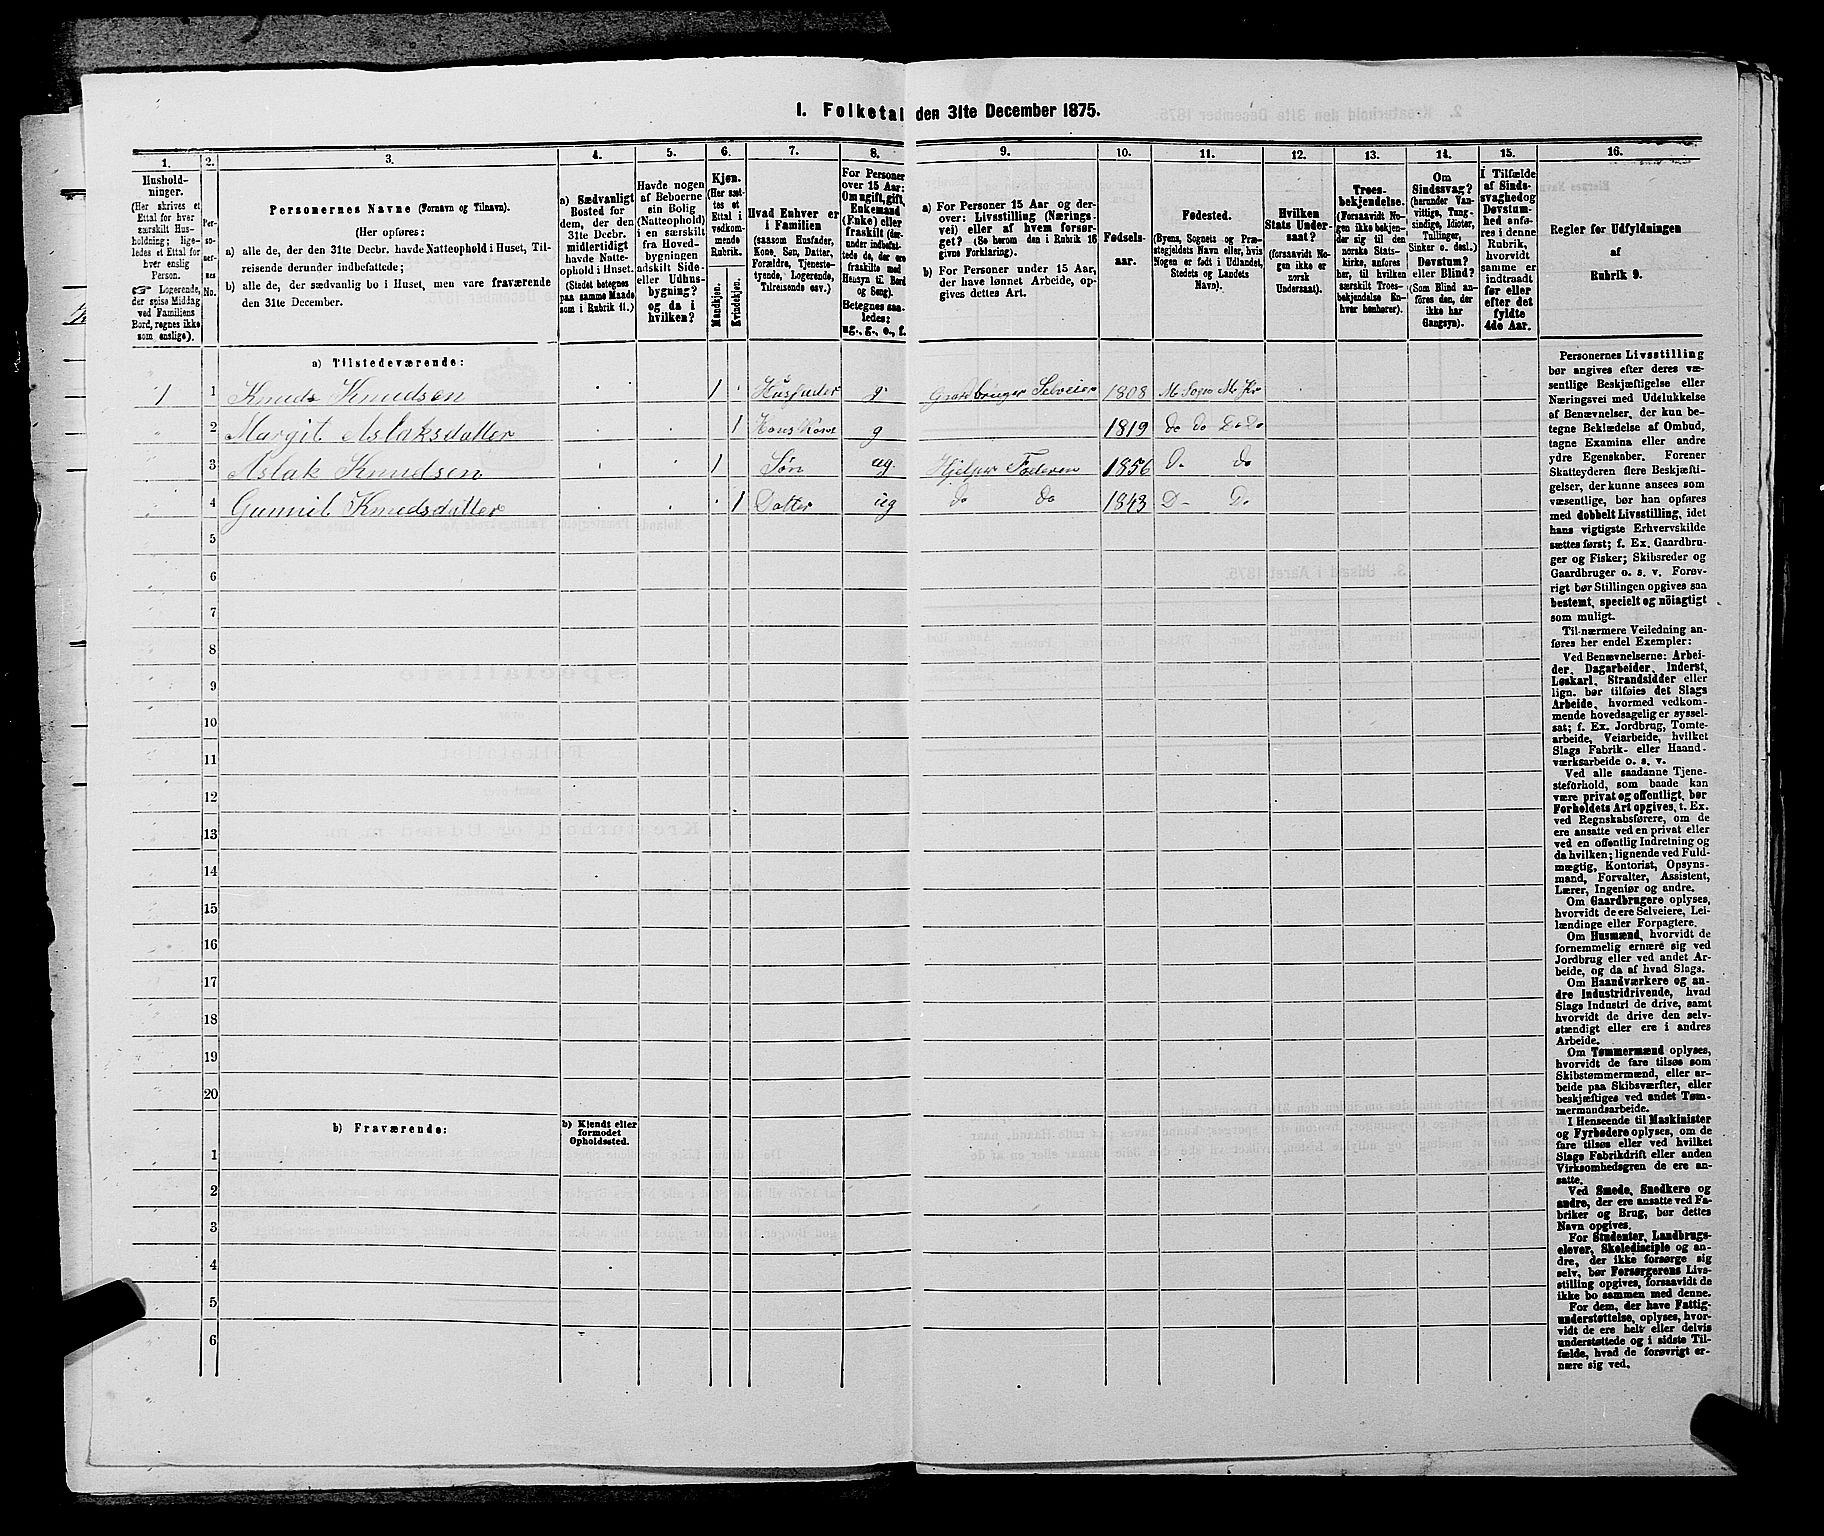 1. Folketal den 31te December 1875.
1.
2.
3.
4.
5.
6.
7.
8.
9.
10.
11.
12.
13.
14.
15.
16.
Hushold-
ninger.
(Her skrives et
Ettal for hver
særskilt Hus-
holdning; lige-
ledes et Ettal for
hver enslig
Person.
☞ Logerende,
der spise Middag
ved Familiens
Bord, regnes ikke
som enslige).
Per-
so-
ner-
nes
No.
Personernes Navne (Fornavn og Tilnavn).
(Her opføres:
a) alle de, der den 31te Decbr. havde Natteophold i Huset, Til-
reisende derunder indbefattede;
b) alle de, der sædvanlig bo i Huset, men vare fraværende
den 31te December.
a) Sædvanligt
Bosted for
dem, der den
31te Decbr.
midlertidigt
havde Natte-
ophold i Huset.
(Stedet betegnes
paa samme Maade
som i Rubrik 11.)
Havde nogen
af Beboerne
sin Bolig
(Natteophold)
i en særskilt
fra Hoved-
bygningen
adskilt Side-
eller Udhus-
bygning?
og da i
hvilken?
Kjøn.
(Her sæt-
tes et
Ettal i
vedkom-
mende
Rubrik.
Mandkjøn.
Kvindekjøn.
Hvad Enhver er
i Familien
(saasom Husfader,
Kone, Søn, Datter,
Forældre, Tjeneste-
tyende, Logerende,
Tilreisende osv.)
For Personer
over 15 Aar:
Om ugift, gift,
Enkemand
(Enke) eller
fraskilt (der-
under indbefat-
tede de, der ere
fraskilte med
Hensyn til Bord
og Seng).
Betegnes saa-
ledes:
ug., g., e., f.
a) For Personer 15 Aar og der-
over: Livsstilling (Nærings-
vei) eller af hvem forsør-
get? (Se herom den i Rubrik 16
givne Forklaring).
b) For Personer under 15 Aar,
der have lønnet Arbeide, op-
gives dettes Art.
Fødsels-
aar.
Fødested.
(Byens, Sognets og Præ-
stegjeldets Navn eller, hvis
Nogen er født i Udlandet,
Stedets og Landets
Navn).
Hvilken
Stats Under-
saat?
(forsaavidt No-
gen ikke er
norsk
Undersaat).
Troes-
bekjendelse.
(Forsaavidt No-
gen ikke bekjen-
der sig til den
norske Stats-
kirke, anføres
her, til hvilken
særskilt Troes-
bekjendelse En-
hver henhører).
Om
Sindssvag?
(herunder Van-
vittige, Tung-
sindige, Idioter,
Tullinger,
Sinker o. desl.)
Døvstum?
eller Blind?
(Som Blind an-
føres den, der
ikke har
Gangsyn).
I Tilfælde
af Sinds-
svaghed og
Døvstum-
hed anfø-
res i denne
Rubrik,
hvorvidt
samme er
indtraadt
før eller
efter det
fyldte
4de Aar.
Regler for Udfyldningen
af
Rubrik 9.
a) Tilstedeværende:
1 1 Knuds Knudsen 1 Husfader g. Gaardbruger Selveier 1808 M Sogn M. Kr
2 Margit Aslaksdatter 1 Hans Kone g 1819 do do Do Do
3 Aslak Knudsen 1 Søn ug. Hjelper Faderen 1856 D. do
4 Gunnil Knudsdatter 1 Datter ug do do 1843 D- D.
5
6
7
8
9
10
11
12
13
14
15
16
17
18
19
20
b) Fraværende:
b) Kjendt eller
formodet
Opholdssted.
1
2
3
4
5
6
Personernes Livsstilling
bør angives efter deres væ-
sentlige Beskjæftigelse eller
Næringsvei med Udelukkelse
af Benævnelser, der kun be-
tegne Beklædelse af Ombud,
tagne Examina eller andre
ydre Egenskaber. Forener
Skatteyderen flere Beskjæfti-
gelser, der kunne ansees som
væsentlige, bør han opføres
med dobbelt Livsstilling, idet
hans vigtigste Erhvervskilde
sættes først; f. Ex. Gaardbru-
ger og Fisker; Skibsreder og
Gaardbruger o. s. v. Forøv-
rigt bør Stillingen opgives saa
bestemt, specielt og nöiagtigt
som muligt.
Til nærmere Veiledning an-
føres her endel Exempler:
Ved Benævnelserne: Arbei-
der, Dagarbeider, Inderst,
Løskarl, Strandsidder eller
lign. bør tilføies det Slags
Arbeide, hvormed vedkom-
mende hovedsagelig er syssel-
sat; f. Ex. Jordbrug, Tomte-
arbeide, Veiarbeide, hvilket
Slags Fabrik- eller Haand-
værksarbeide o. s. v.
Ved alle saadanne Tjene-
steforhold, som baade kan
være privat og offentligt, bør
Forholdets Art opgives, t. Ex.
ved Regnskabsførere, om de
ere ansatte ved en privat eller
ved en offentlig Indretning og
da hvilken; lignende ved Fuld-
mægtig, Kontorist, Opsyns-
mand, Forvalter, Assistent,
Lærer, Ingeniør og andre.
Om Gaardbrugere oplyses,
hvorvidt de ere Selveiere, Lei-
lændinge eller Forpagtere.
Om Husmænd, hvorvidt de
fornemmelig ernære sig ved
Jordbrug eller ved andet Ar-
beide, og da af hvad Slags.
Om Haandværkere og an-
dre Industridrivende, hvad
Slags Industri de drive, samt
hvorvidt de drive den selv-
stændigt eller ere i andres
Arbeide.
Om Tømmermænd oplyses,
hvorvidt de fare tilsøs som
Skibstømmermænd, eller ar-
beide paa Skibsværfter, eller
beskjæftiges ved andet Tøm-
mermandsarbeide.
I Henseende til Maskinister
og Fyrbødere oplyses, om de
fare tilsøs eller ved hvilket
Slags Fabrikdrift eller anden
Virksomhedsgren de ere an-
satte.
Ved Smede, Snedkere og
andre, der ere ansatte ved Fa-
briker og Brug, bør dettes
Navn opgives.
For Studenter, Landbrugs-
elever, Skoledisciple og an-
dre, der ikke forsørge sig
selv, bør Forsørgerens Livs-
stilling opgives, forsaavidt de
ikke bo sammen med denne.
For dem, der have Fattig-
understøttelse, oplyses, hvor-
vidt de ere helt eller delvis
understøttede og i sidste Til-
fælde, hvad de forøvrigt er-
nære sig ved.